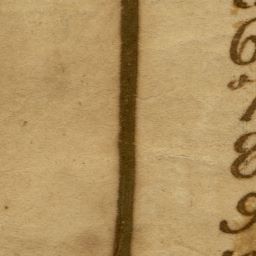 6
7
8
9